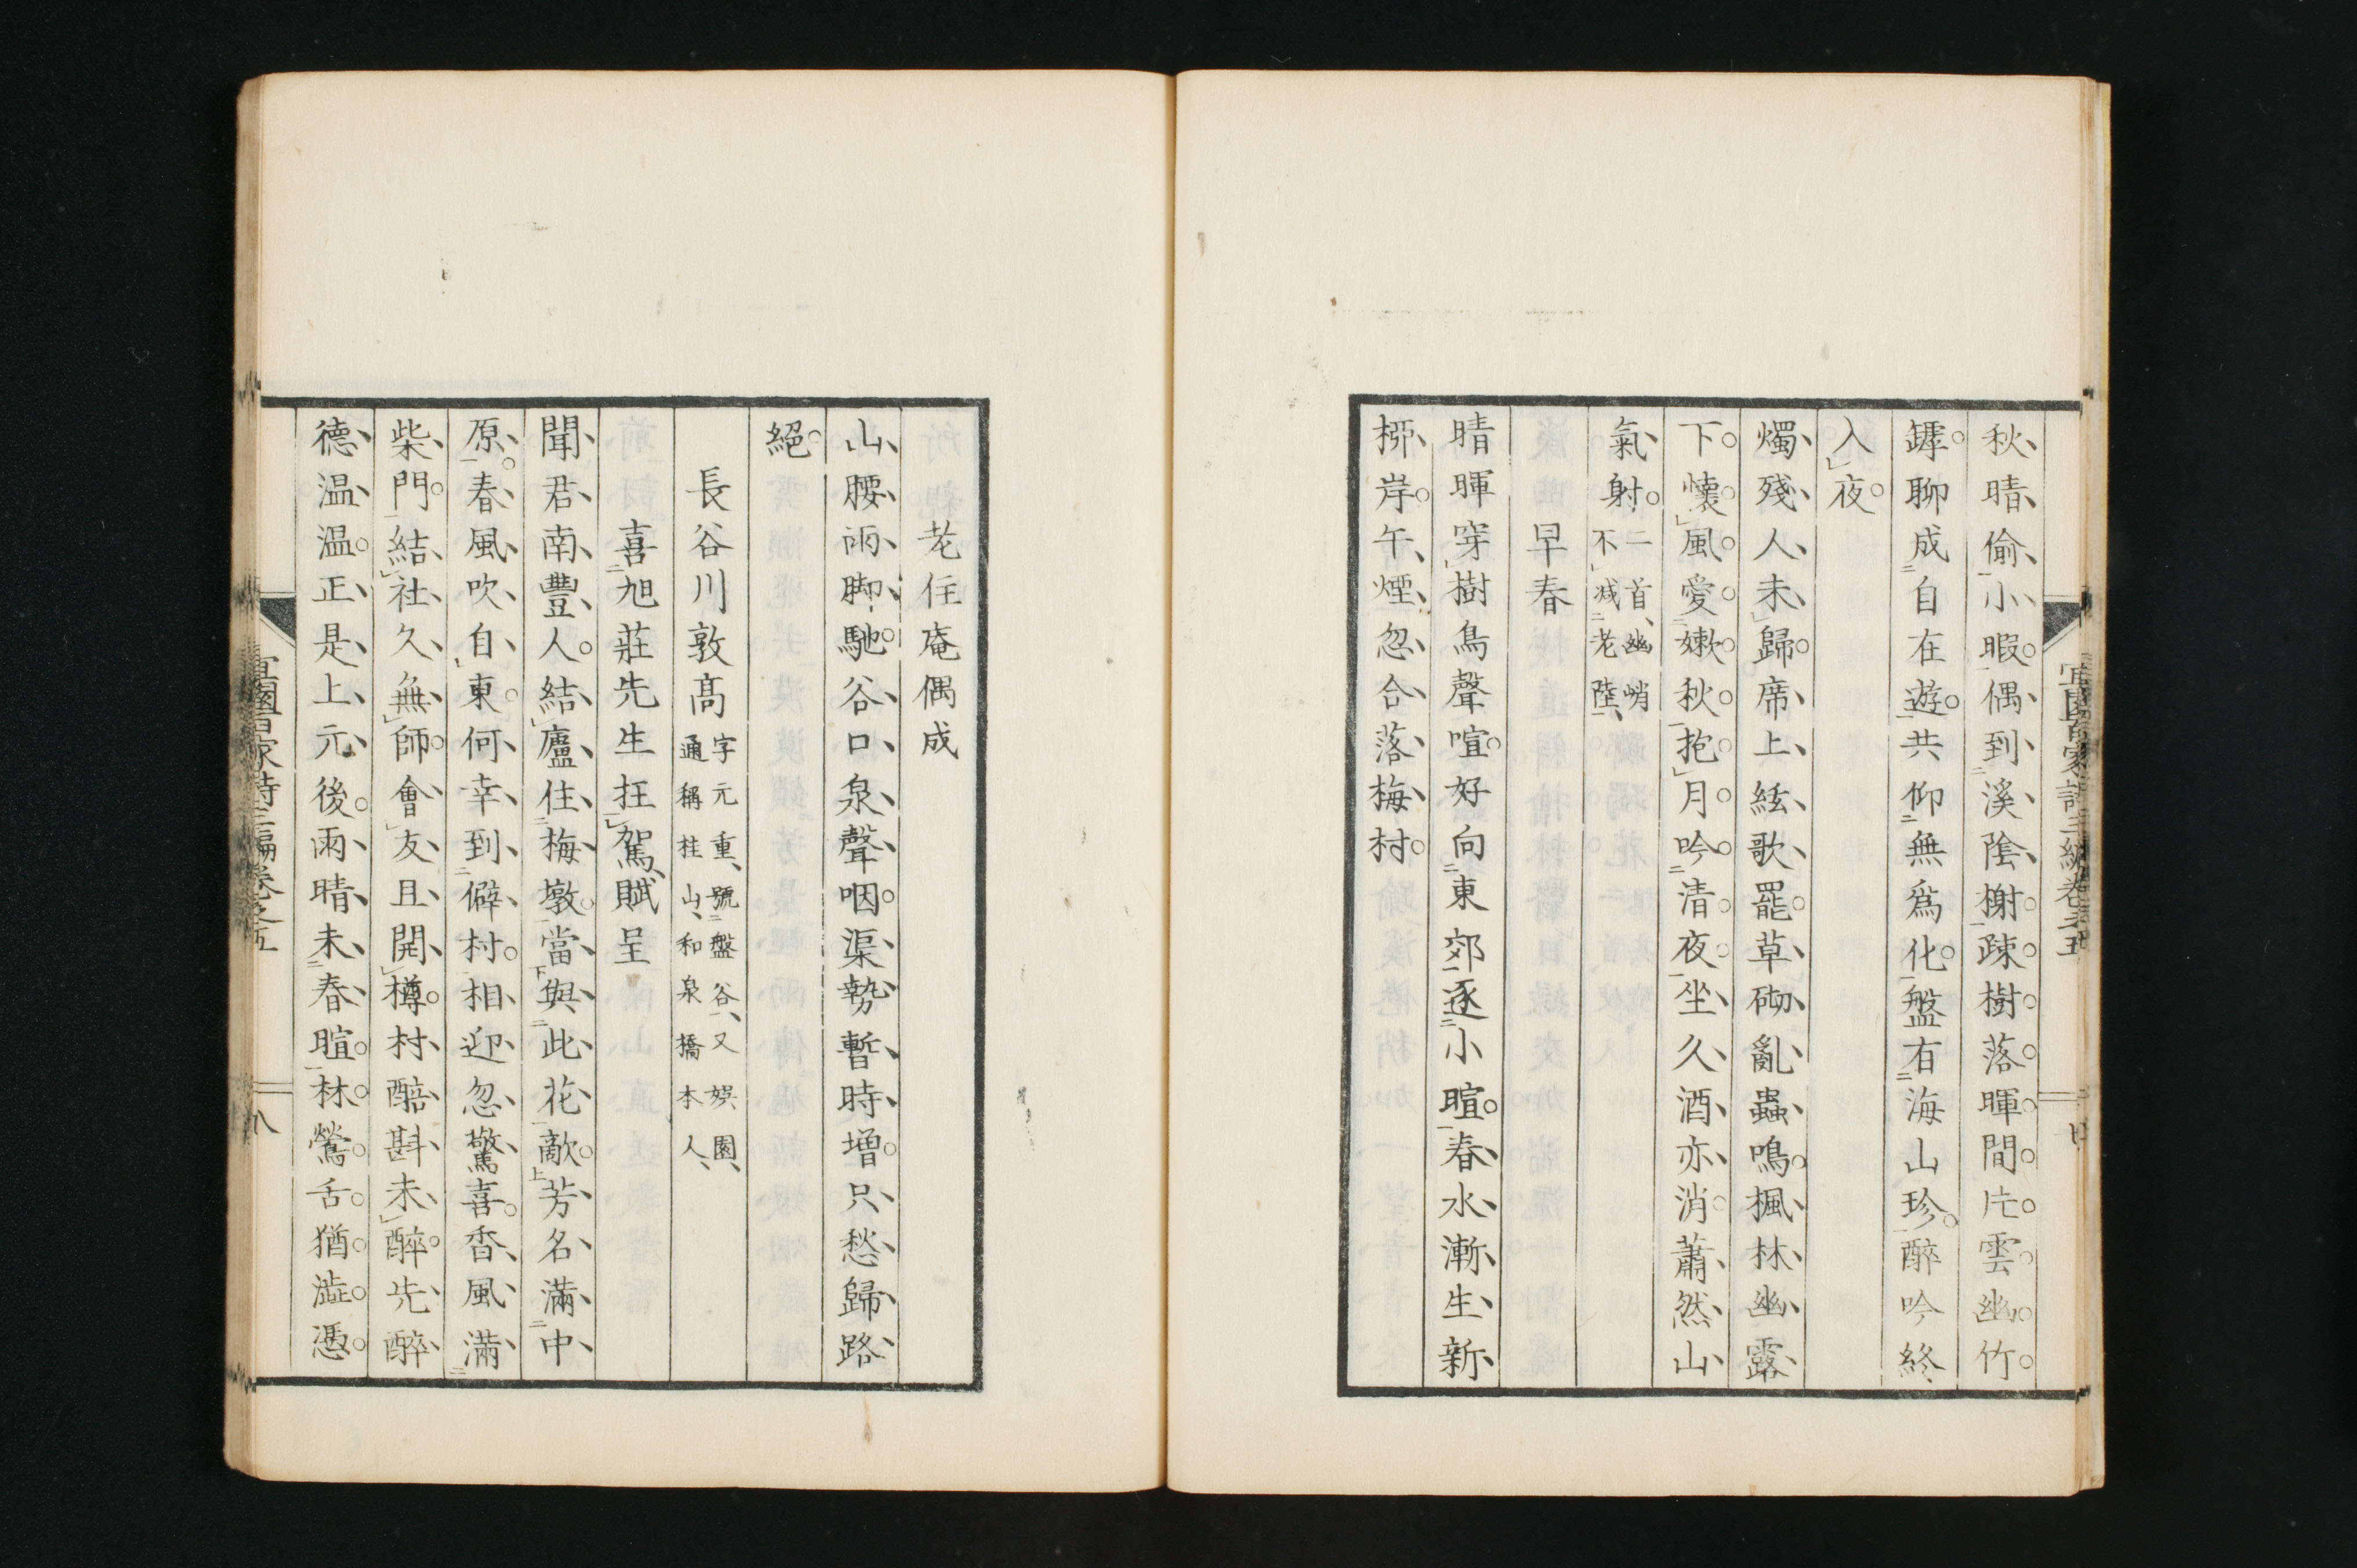 秋晴偷小暇偶到溪陰榭疎樹落暉間片雲幽竹
罅聊成自在遊共仰無爲化盤有海山珍醉吟終
入夜
燭殘人未歸席上絃歌罷草砌亂蟲鳴楓林幽露
下懷風愛嫩秋抱月吟清夜坐久酒亦消蕭然山
氣射二首幽峭
不减老陸
早春
晴暉穿樹鳥聲喧好向東郊逐小暄春水漸生新
桺岸午煙忽合落梅村
宜園百家詩三編卷之五
老住庵偶成
山腰雨脚馳谷口泉聲咽渠勢暫時增只愁歸路
絕
長谷川敦高字元重號盤谷又娯園
通稱桂山和泉橋本人
喜旭莊先生抂駕賦呈
聞君南豐人結廬住梅墩當與此花敵芳名滿中
原春風吹自東何幸到僻村相迎忽驚喜香風滿
柴門結社久無師會友且開樽村醅斟未醉先醉
德溫溫正是上元後雨晴未春暄林鶯舌猶澁憑
宜園百家詩三編卷之五
八